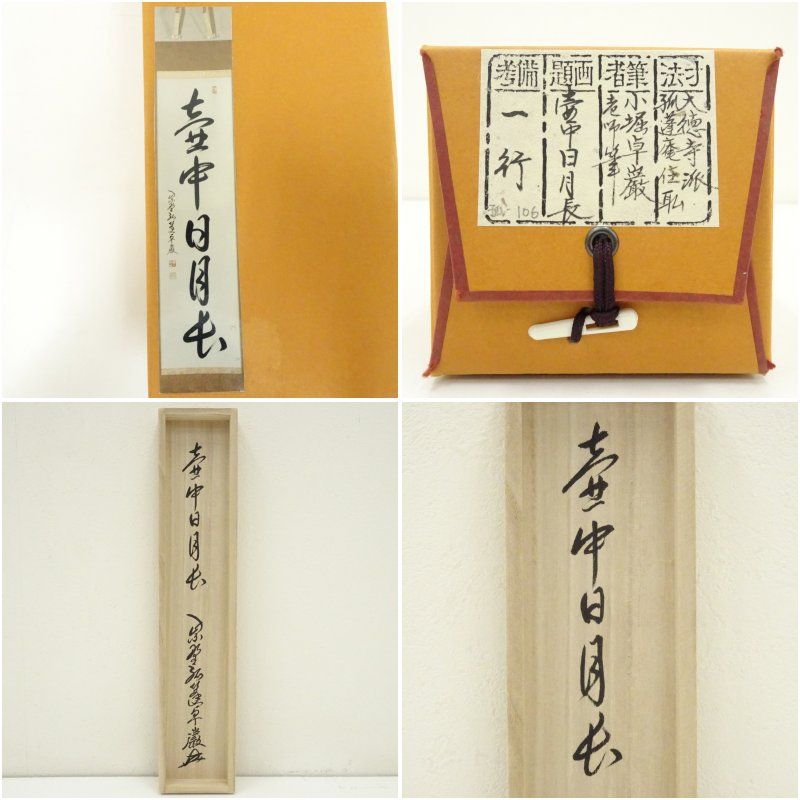 壷中日月長
備考
画題
筆者
寸法
大徳寺派
孤篷庵住職
小堀卓巖
老師筆
壷中日月長
一行
106
壷中日月長
紫野孤篷卓巖
壷中日月長